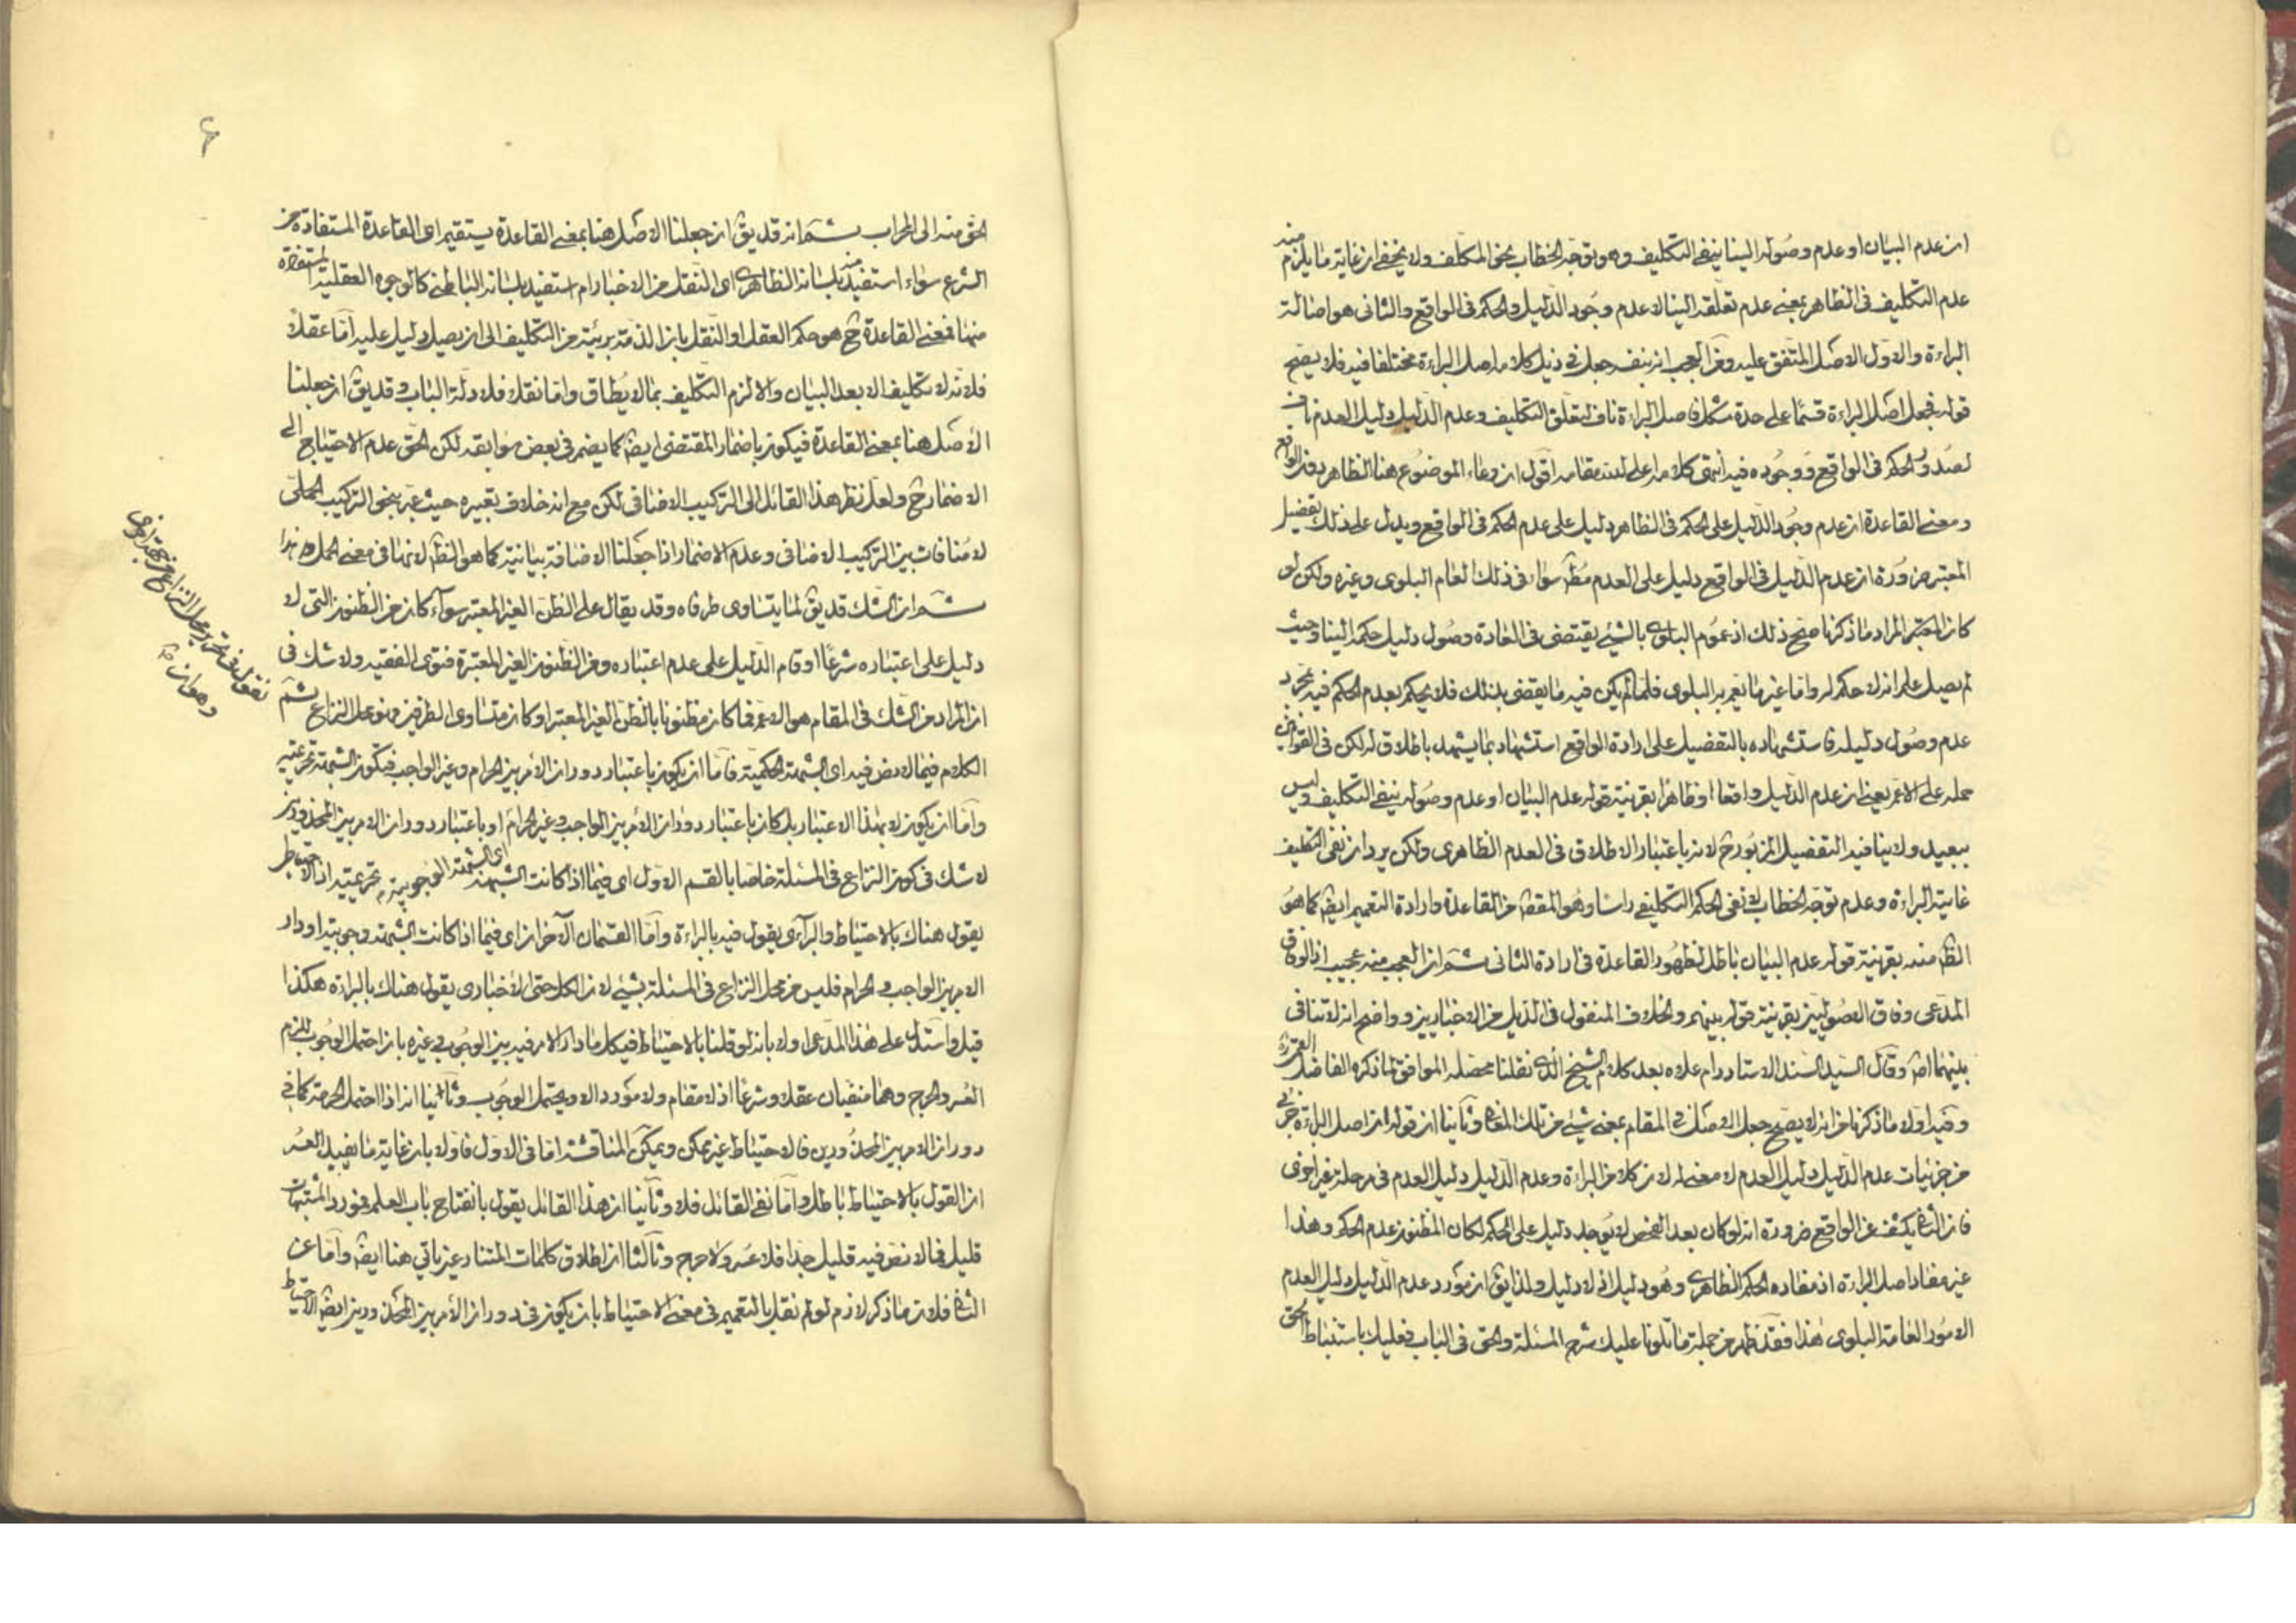 ان عدم البيان او عدم وصوله الينا ينفى التكليف وهو توجّه الخطاب بحق المكلف ولا يخفى ان غاية ما يلزم منه
عدم التكليف فى الظاهر بمعنى عدم تعلقه الينا لا عدم وجود الدّليل والحكم فى الواقع والثانى هو اصالة
البراءة والاول الاصل المتفق عليه ومن العجب انه بنفسه جعل فى ذيل كلامه اصل البراءة مختلفا فيه فلا يصح
قوله فجعل اصل البراءة قسمًا على حدة مشكل فاصل البراءة ناف لتعلق التكليف وعدم الدّليل دليل العدم ناف
لصدور الحكم فى الواقع ووجوده فيه انتهى كلامه اعلى الله مقامه اقول ان وعاء الموضوع هنا الظاهر دون الواقع
ومعنى القاعدة ان عدم وجود الدّليل على الحكم فى الظاهر دليل على عدم الحكم فى الواقع ويدل على ذلك تفصيل
المعتبر ضرورة ان عدم الدّليل فى الواقع دليل على العدم مطّ سواء فى ذلك العام البلوى وغيره ولكن لو
كان المعتبر المراد ما ذكرنا صح ذلك اذ عموم البلوى بالشئ يقتضى فى العادة وصول دليل حكمه الينا وحيث
لم يصل علم انه لا حكم له واما غير ما تعم به البلوى فلما لم يكن فيه ما يقضى بذلك فلا يحكم بعدم الحكم فيه بمجرد
عدم وصول دليله فاستشهاده بالتفصيل على ارادة الواقع استشهاد بما يشهد باطلاقه لكن فى القوانين
حمله على الاعم يعنى ان عدم الدّليل واقعا او ظاهرا بقرينة قوله عدم البيان او عدم وصوله ينفى التكليف وليس
ببعيد ولا ينافيه التفصيل المزبور ح لانه باعتبار الاطلاق فى العدم الظاهرى ولكن يرد ان نفى التكليف
غايته البراءة وعدم توجّه الخطاب لا نفى الحكم التكليفى راسا وهو المقصّ من القاعدة وارادة التعميم ايضً كما هو
الظّ منه بقرينة قوله عدم البيان باطل لظهور القاعدة فى ارادة الثانى ثمّ ان العجب منه عجيب اذ الوفاق
المدّعى وفاق الاصوليين بقرينة قوله بينهم والخلاف المنقول فى الذيل من الاخباريين وواضح انه لا تنافى
بينهما اصً وقال السّيد السّند الاستاد دام علاه بعد كلام الشيخ الّذى نقلنا محصله الموافق لما ذكره الفاضل
وفيه اولا ما ذكرنا من انه لا يصح جعل الاصل فى المقام بمعنى شئ من تلك المعانى وثانيا ان قوله ان اصل البراءة جزئى
من جزئيات عدم الدّليل دليل العدم لا معنى له لان كلا من البراءة وعدم الدّليل دليل العدم فى مرحلة غير اخرى
فان الثانى يكشف عن الواقع ضرورة انه لو كان بعد الفحص لا يوجد دليل على الحكم لكان المظنون عدم الحكم وهذا
غير مفاد اصل البراءة اذ مفاده الحكم الظاهرى وهو دليل اذ لا دليل ولذا يقّ ان مورد عدم الدّليل دليل العدم
الامور العامة البلوى هذا فقد ظهر من جملة ما تلونا عليك شرح المسئلة والحق فى الباب فعليك باستنباط الحق
۶
الحق منه الى المحراب ثمّ انه قد يقّ ان جعلنا الاصل هنا بمعنى القاعدة يستقيم اى القاعدة المستفادة من
الشرع سواء استفيد منه بلسانه الظاهرى اى النقل من الاخبار ام استفيد بلسانه الباطنى كالوجوه العقلية المستفادة
منها فمعنى القاعدة ح هو حكم العقل او النقل بان الذمة بريئة من التكليف الى ان يصل دليل عليه اما عقلا
فلانه لا تكليف الا بعد البيان والا لزم التكليف بما لا يطاق واما نقلا فلادلة الباب وقد يقّ ان جعلنا
الاصل هنا بمعنى القاعدة فيكون باضمار المقتضى ايضً كما يضمر فى بعض سوابقه لكن الحق عدم الاحتياج الى
الاضمار ح ولعل نظر هذا القائل الى التركيب الاضافى لكن مع انه خلاف تعبيره حيث عبّر بنحو التركيب الحملى
لا منافات بين التركيب الاضافى وعدم الاضمار اذا جعلنا الاضافة بيانية كما هو الظّ لانها فى معنى الحمل هذا
ثمّ ان الشك قد يقّ لما يتساوى طرفاه وقد يقال على الظن الغير المعتبر سواء كان من الظنون التى لا
دليل على اعتباره شرعًا او قام الدّليل على عدم اعتباره ومن الظنون الغير المعتبرة فتوى الفقيه ولا شك فى
ان المراد من الشك فى المقام هو الاعم فما كان مظنونا بالظن الغير المعتبر او كان متساوى الطرفين فهو محل النزاع ثمّ
نقول فى تحرير محل النزاع من جهة اخرى
وهو ان
الكلام فيما لا نص فيه اى الشبهة الحكمية فاما ان يكون باعتبار دوران الامر بين الحرام وغير الواجب فيكون الشبهة تحريمية
واما ان يكون لا بهذا الاعتبار بل كان باعتبار دوران الامر بين الواجب وغير الحرام او باعتبار دوران الامر بين المحذورين
لا شك فى كون النزاع فى المسئلة خاصا بالقسم الاول اى فيما اذا كانت الشبهة اى الشبهة الوجوبية تحريمية اذ الاحتياط
يقول هناك بالاحتياط والبرآئى يقول فيه بالبراءة واما القسمان الآخران اى فيما اذا كانت الشبهة وجوبية او دار
الامر بين الواجب والحرام فليس من محل النزاع فى المسئلة بشئ لان الكل حتى الاخبارى يقول هناك بالبراءة هكذا
قيل واستدل على هذا المدعى اولا بانه لو قلنا بالاحتياط فى كل ما دار الامر فيه بين الوجوب وغيره بان احتمل الوجوب للزم
العسر والحرج وهما منفيان عقلا وشرعا اذ لا مقام ولا مورد الا ويحتمل الوجوب وثانيا انه اذا احتمل الحرمة كما فى
دوران الامر بين المحذورين فالاحتياط غير ممكن ويمكن المناقشة اما فى الاول فاولا بان غاية ما يفيد العسر
ان القول بالاحتياط باطل واما نفى القائل فلا وثانيا ان هذا القائل يقول بانفتاح باب العلم فمورد المشتبهات
قليل فما لا نص فيه قليل جدا فلا عسر ولا حرج وثالثا ان اطلاق كلمات المتنازعين ياتى هنا ايضً واما عن
الثانى فلان ما ذكر لازم لو لم نقل بالتعميم فى معنى الاحتياط بان يكون فى دوران الامر بين المحذورين ايضً الاحتياط